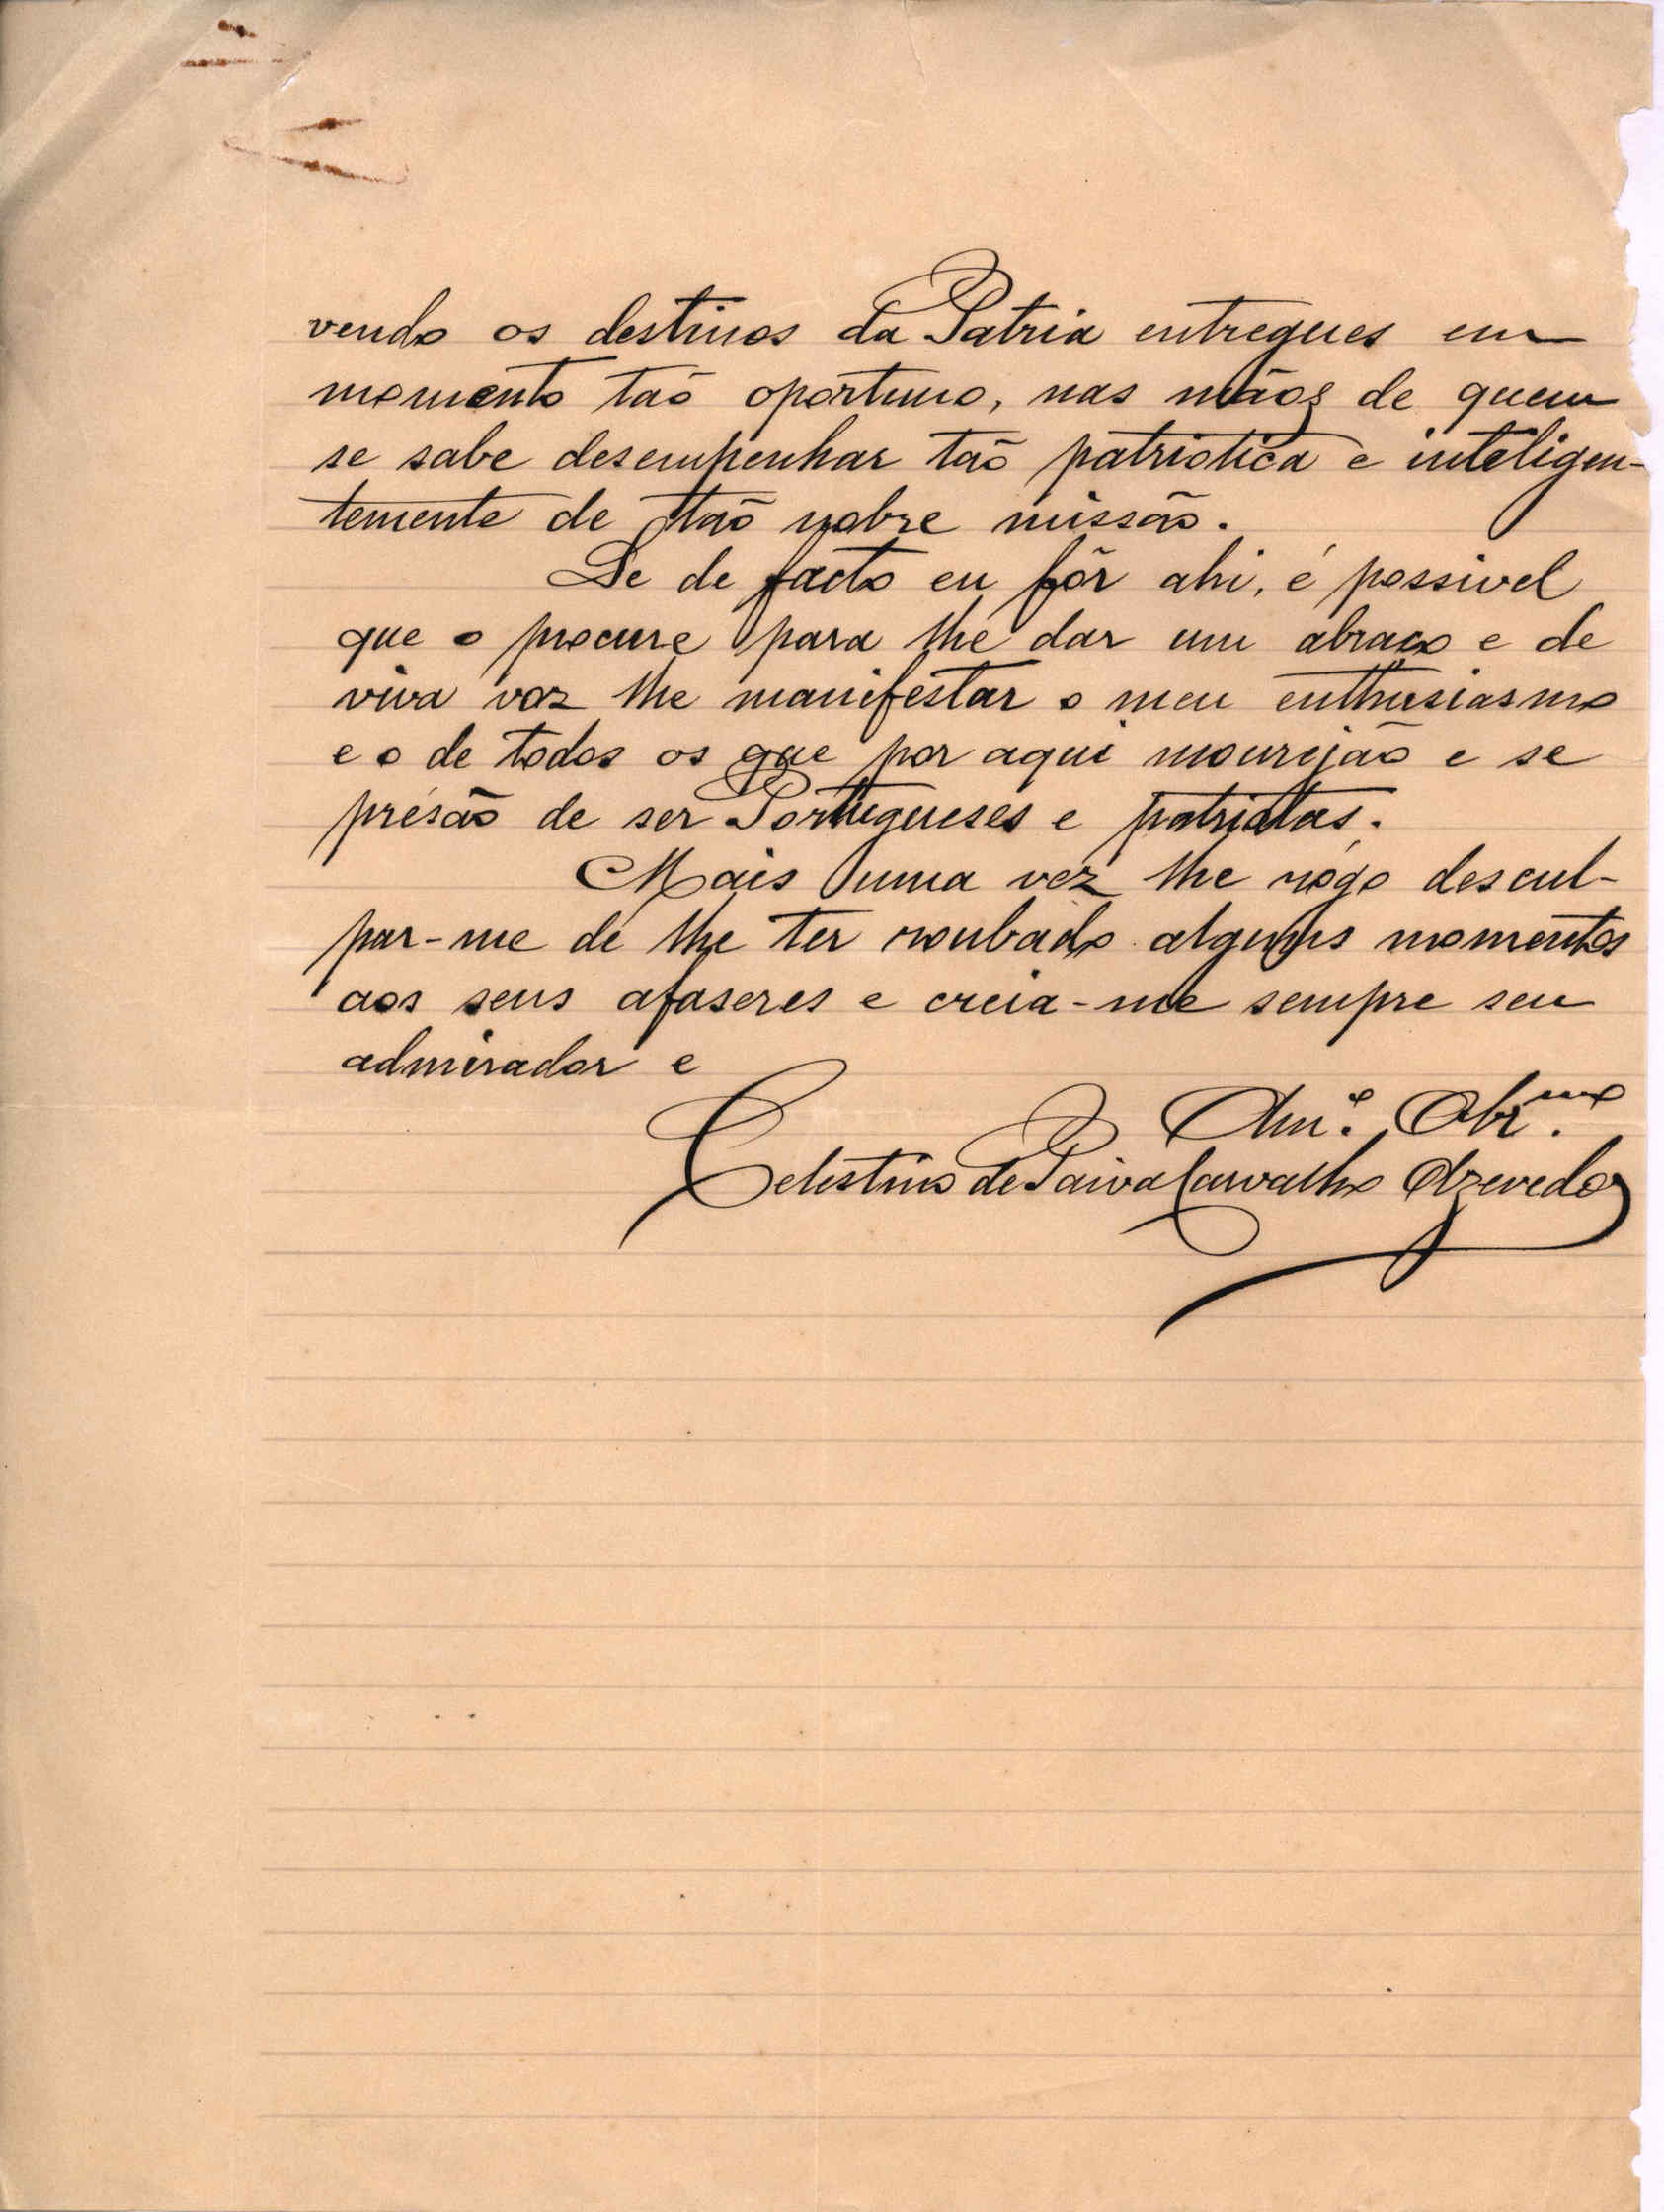 vendo os destinos da Patria entregues em
momento tão oportuno, nas mãos de quem
se sabe desempenhar tão patriotica e inteligen-
temente de tão nobre missão.
Se de facto eu fôr ahi, é possivel
que o procure para lhe dar um abraço e de
viva voz lhe manifestar o meu enthusiasmo
e o de todos os que por aqui mourejão e se
présão de ser Portugueses e patriotas.
Mais uma vez lhe rógo descul-
par-me de lhe ter roubado alguns momentos
aos seus afaseres e creia-me sempre seu
admirador e
Am.º Obr.mo
Celestino de Paiva Carvalho Azevedo